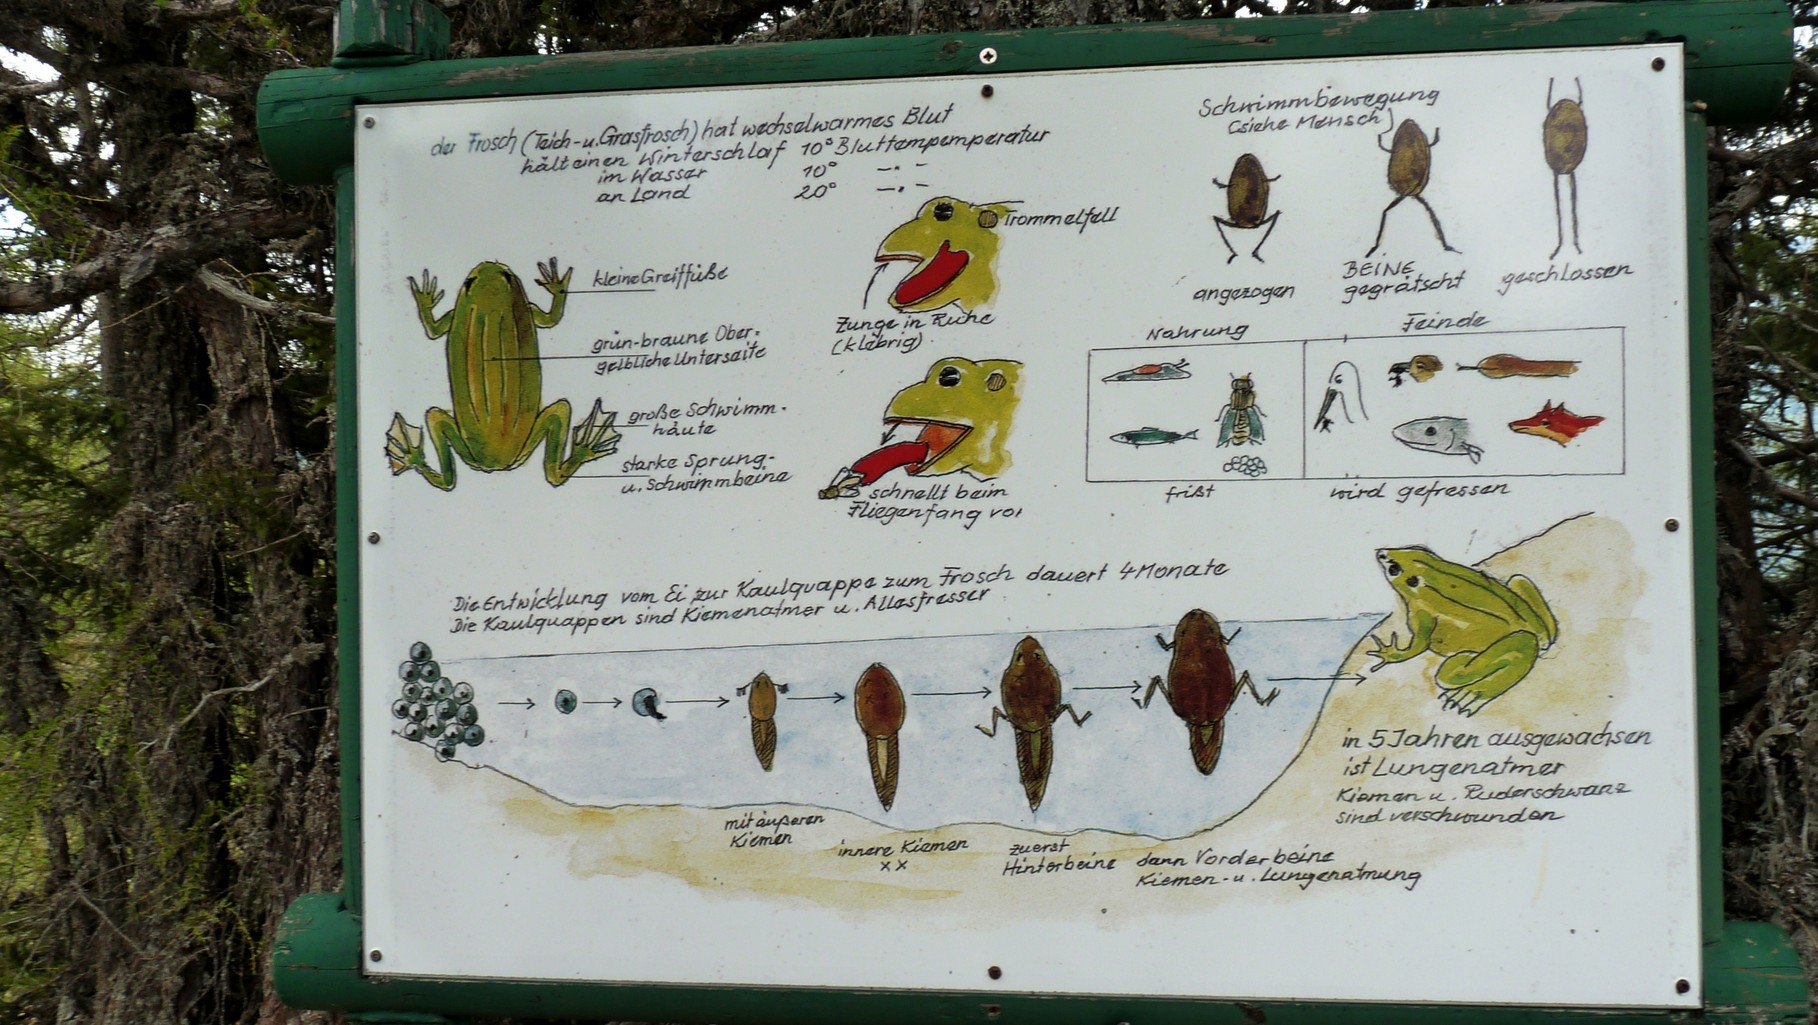 der Frosch (Teich-u.Grasfrosch) hat wechselwarmes Blut
hält einen Winterschlaf 10° Bluttempemperatur
im Wasser 10° —"—
an Land 20° —"—
kleine Greiffüße
grün-braune Ober-
gelbliche Unterseite
große Schwimm-
häute
starke Sprung-
u. Schwimmbeine
Trommelfell
Zunge in Ruhe
(klebrig)
schnellt beim
Fliegenfang vor
Schwimmbewegung
(siehe Mensch)
angezogen
BEINE
gegrätscht
geschlossen
Nahrung
Feinde
frißt
wird gefressen
Die Entwicklung vom Ei zur Kaulquappe zum Frosch dauert 4 Monate
Die Kaulquappen sind Kiemenatmer u. Allesfresser
mit äußeren
Kiemen
innere Kiemen
xx
zuerst
Hinterbeine
dann Vorderbeine
Kiemen-u. Lungenatmung
in 5 Jahren ausgewachsen
ist Lungenatmer
Kiemen u. Ruderschwanz
sind verschwunden